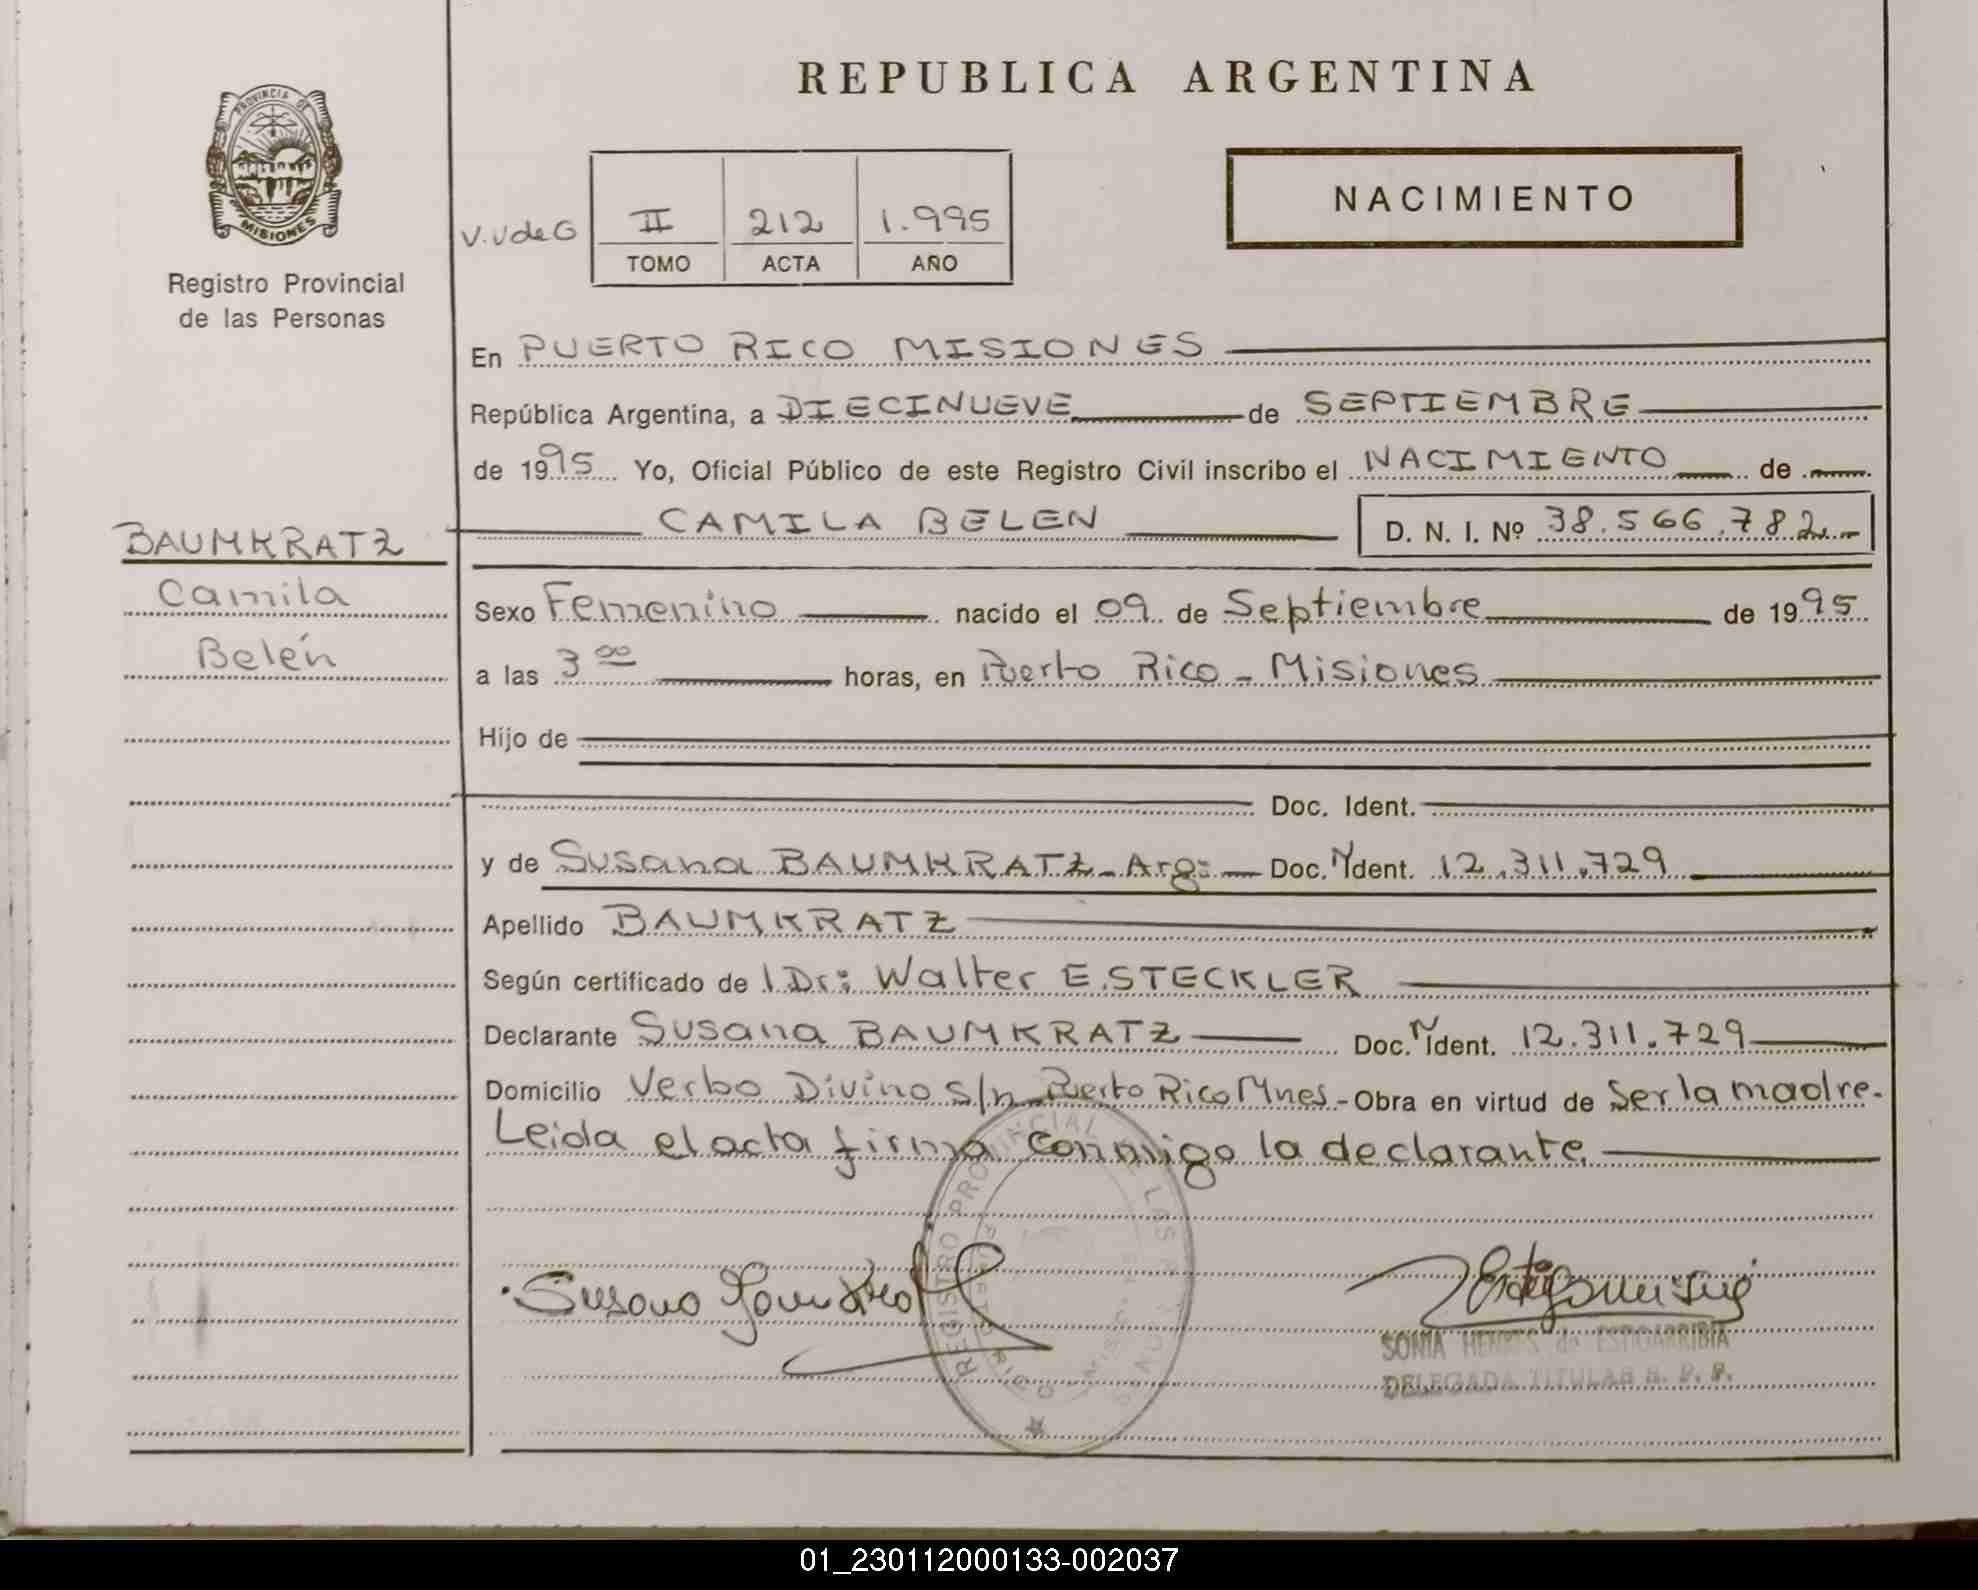 REPUBLICA ARGENTINA
PROVINCIA DE
MISIONES
Registro Provincial
de las Personas
V.V de G
II 212 1.995
TOMO ACTA AÑO
NACIMIENTO
En PUERTO RICO MISIONES
República Argentina, a DIECINUEVE de SEPTIEMBRE
de 1995 Yo, Oficial Público de este Registro Civil inscribo el NACIMIENTO de
CAMILA BELEN D. N. I. Nº 38.566.782
BAUMKRATZ
Camila
Belén
Sexo Femenino nacido el 09 de Septiembre de 1995
a las 3 00 horas, en Puerto Rico - Misiones
Hijo de
Doc. Ident.
y de Susana BAUMKRATZ - Arg: Doc. Ident. 12.311.729
Apellido BAUMKRATZ
Según certificado de l Dr: Walter E. STECKLER
Declarante Susana BAUMKRATZ Doc. Ident. 12.311.729
Domicilio Verbo Divino s/n Puerto Rico Mnes - Obra en virtud de Ser la madre.
Leida el acta firma conmigo la declarante.
REGISTRO PROVINCIAL DE LAS
Susana
SONIA de
DELEGADA TITULAR R. P. P.
01_230112000133-002037